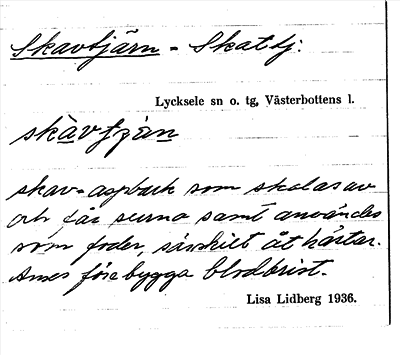 Skavtjärn - Skattj:
Lycksele sn o. tg, Västerbottens l.
skàvtjä́n
skav = aspbark som skalas av
och får surna samt användes
som foder, särskilt åt hästar.
Anses förebygga blodbrist.
Lisa Lidberg 1936.